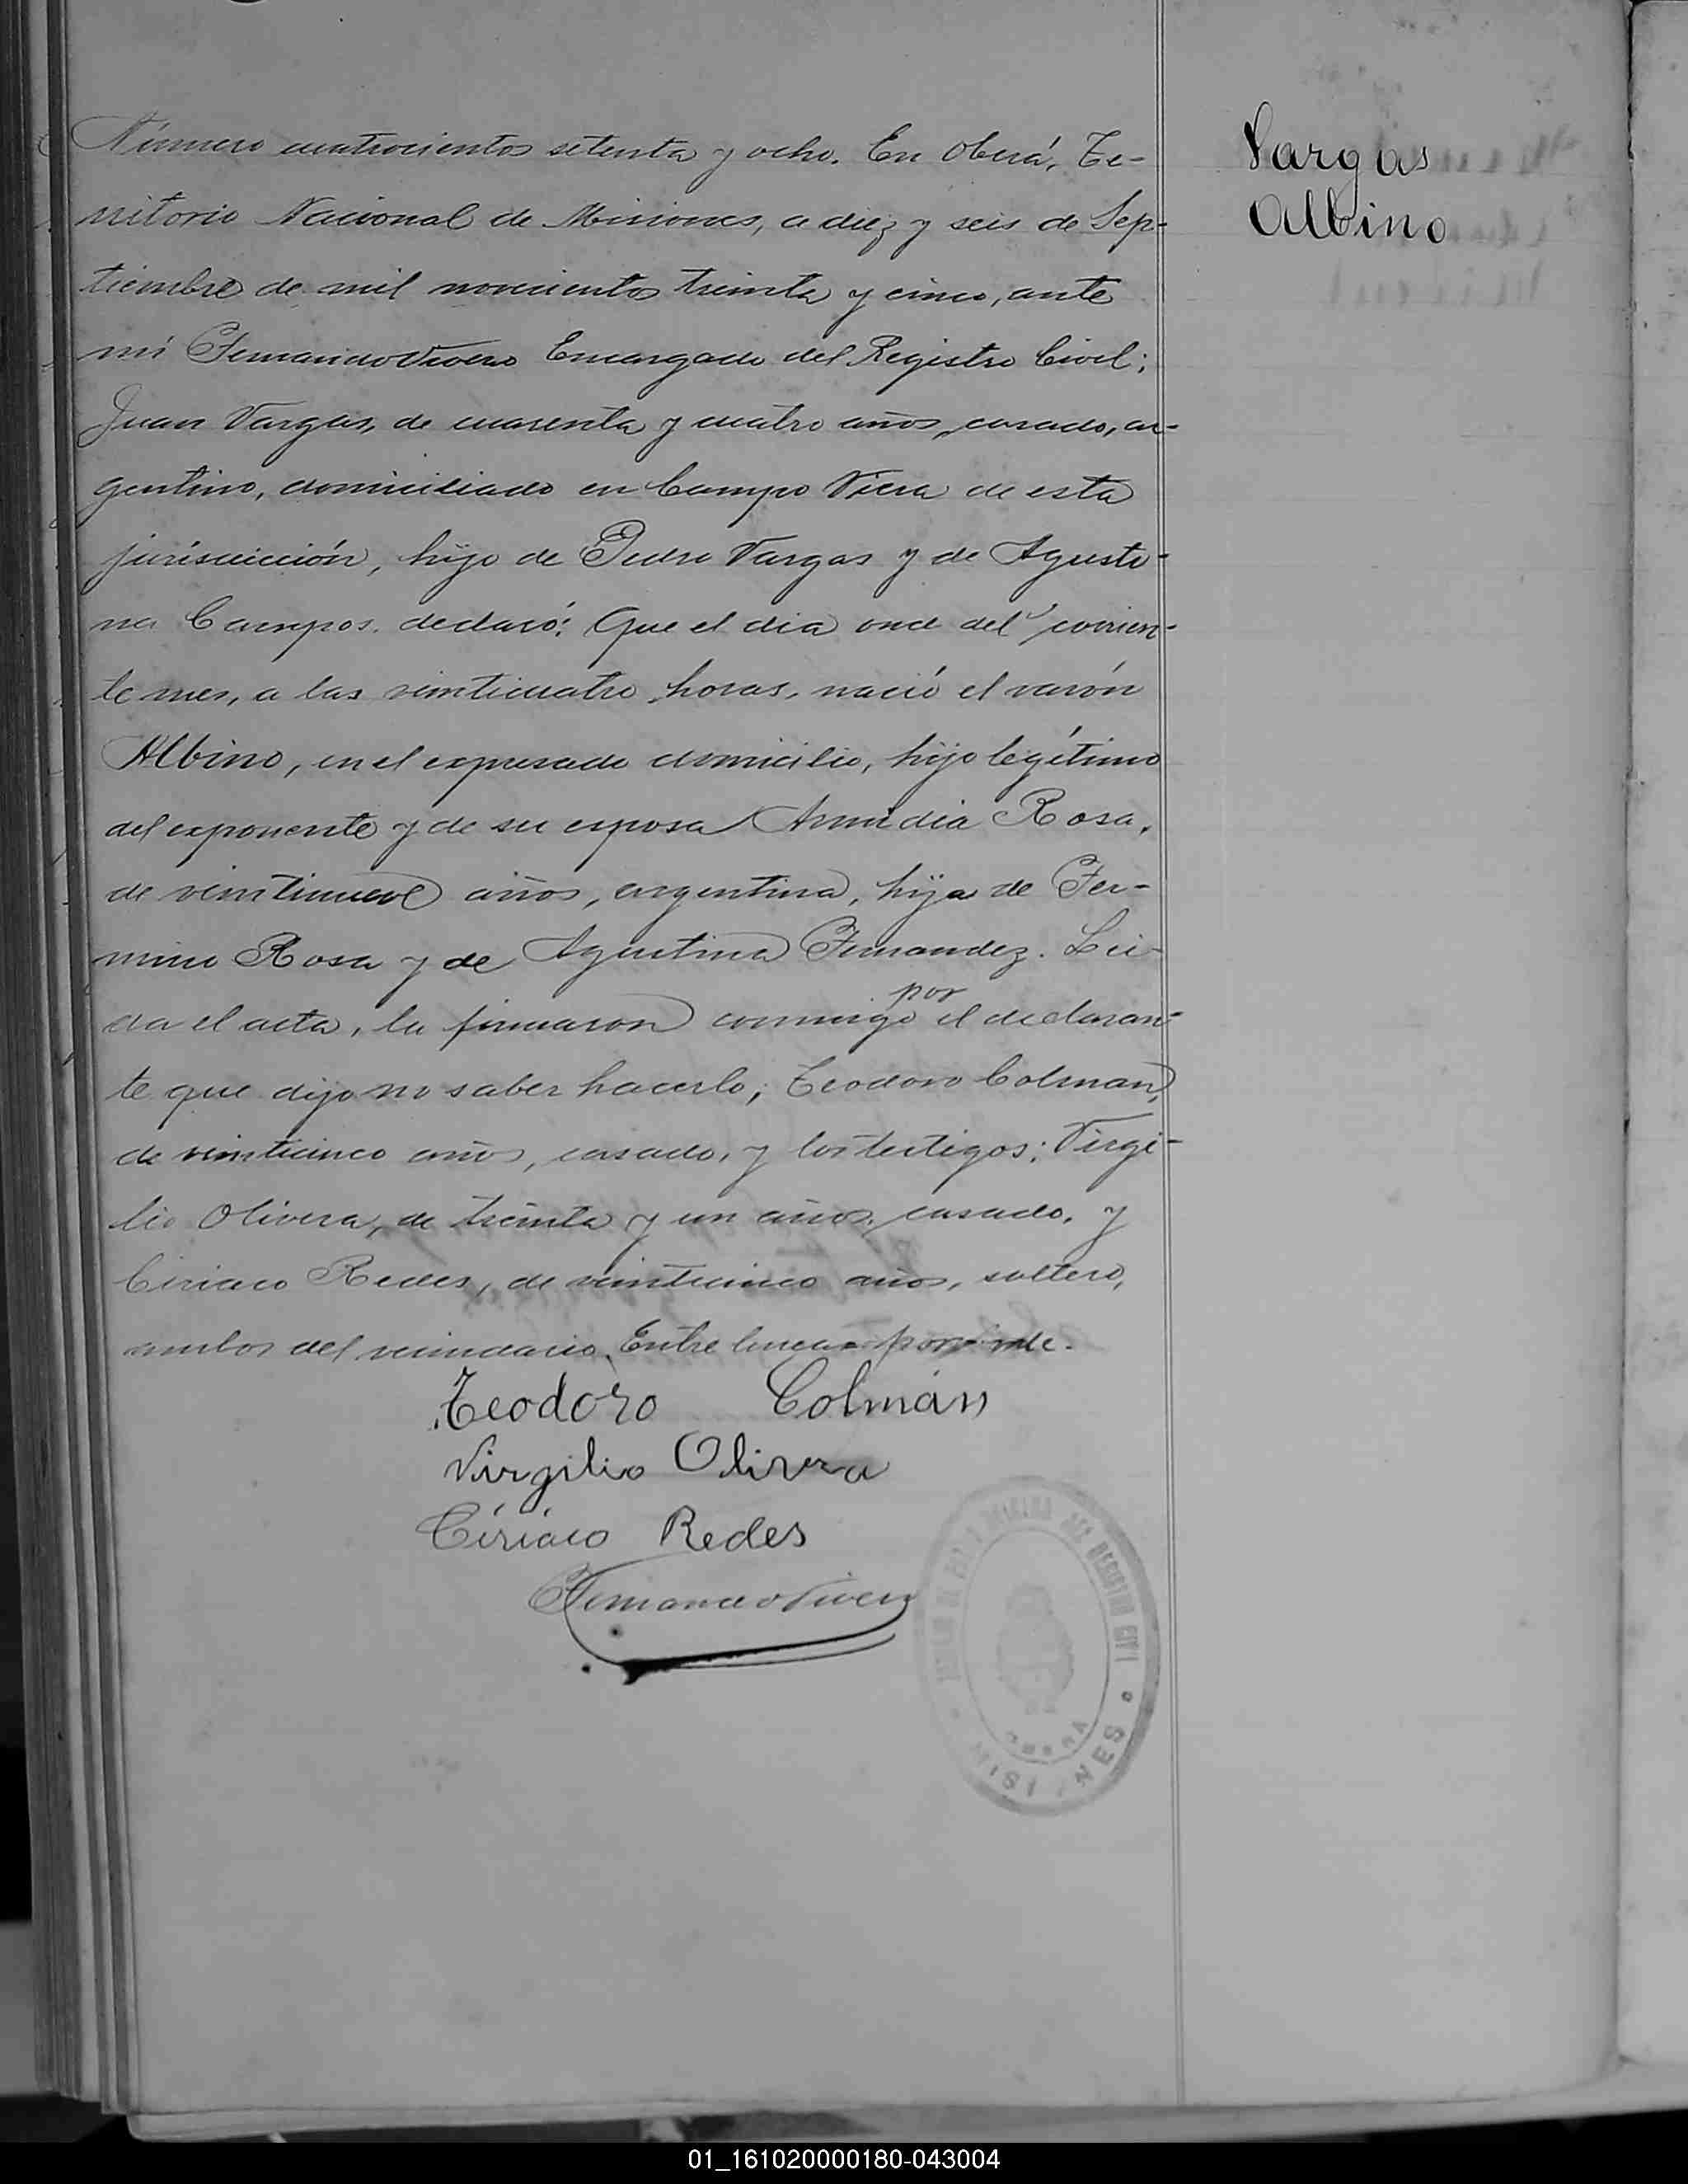 Número cuatrocientos setenta y ocho. En Oberá, Te-
rritorio Nacional de Misiones, a diez y seis de Sep-
tiembre de mil novecientos treinta y cinco, ante
mi Fernando Vivero Encargado del Registro Civil;
Juan Vargas, de cuarenta y cuatro años, casado, ar-
gentino, domiciliado en Campo Viera de esta
jurisdicción, hijo de Pedro Vargas y de Agusti-
na Campos. declaró: Que el dia once del corrien-
te mes, a las veinticuatro horas, nació el varón
Albino, en el expresado domicilio, hijo legítimo
del exponente y de su esposa Armidia Rosa,
de veintinueve años, argentina, hija de Fer-
mino Rosa y de Agustina Fernandez. Leí-
da el acta, la firmaron conmigo por el declaran-
te que dijo no saber hacerlo; Teodoro Colman,
de veinticinco años, casado, y los testigos; Virgi-
lio Olivera, de treinta y un años, casado, y
Ciriaco Redes, de veinticinco años, soltero,
ambos del vecindario. Entre lineas por vale.
Teodoro Colmán
Virgilio Olivera
Círiaco Redes
Fernando Vivero
Vargas
Albino
REGISTRO CIVIL
MISIONES
01_161020000180-043004